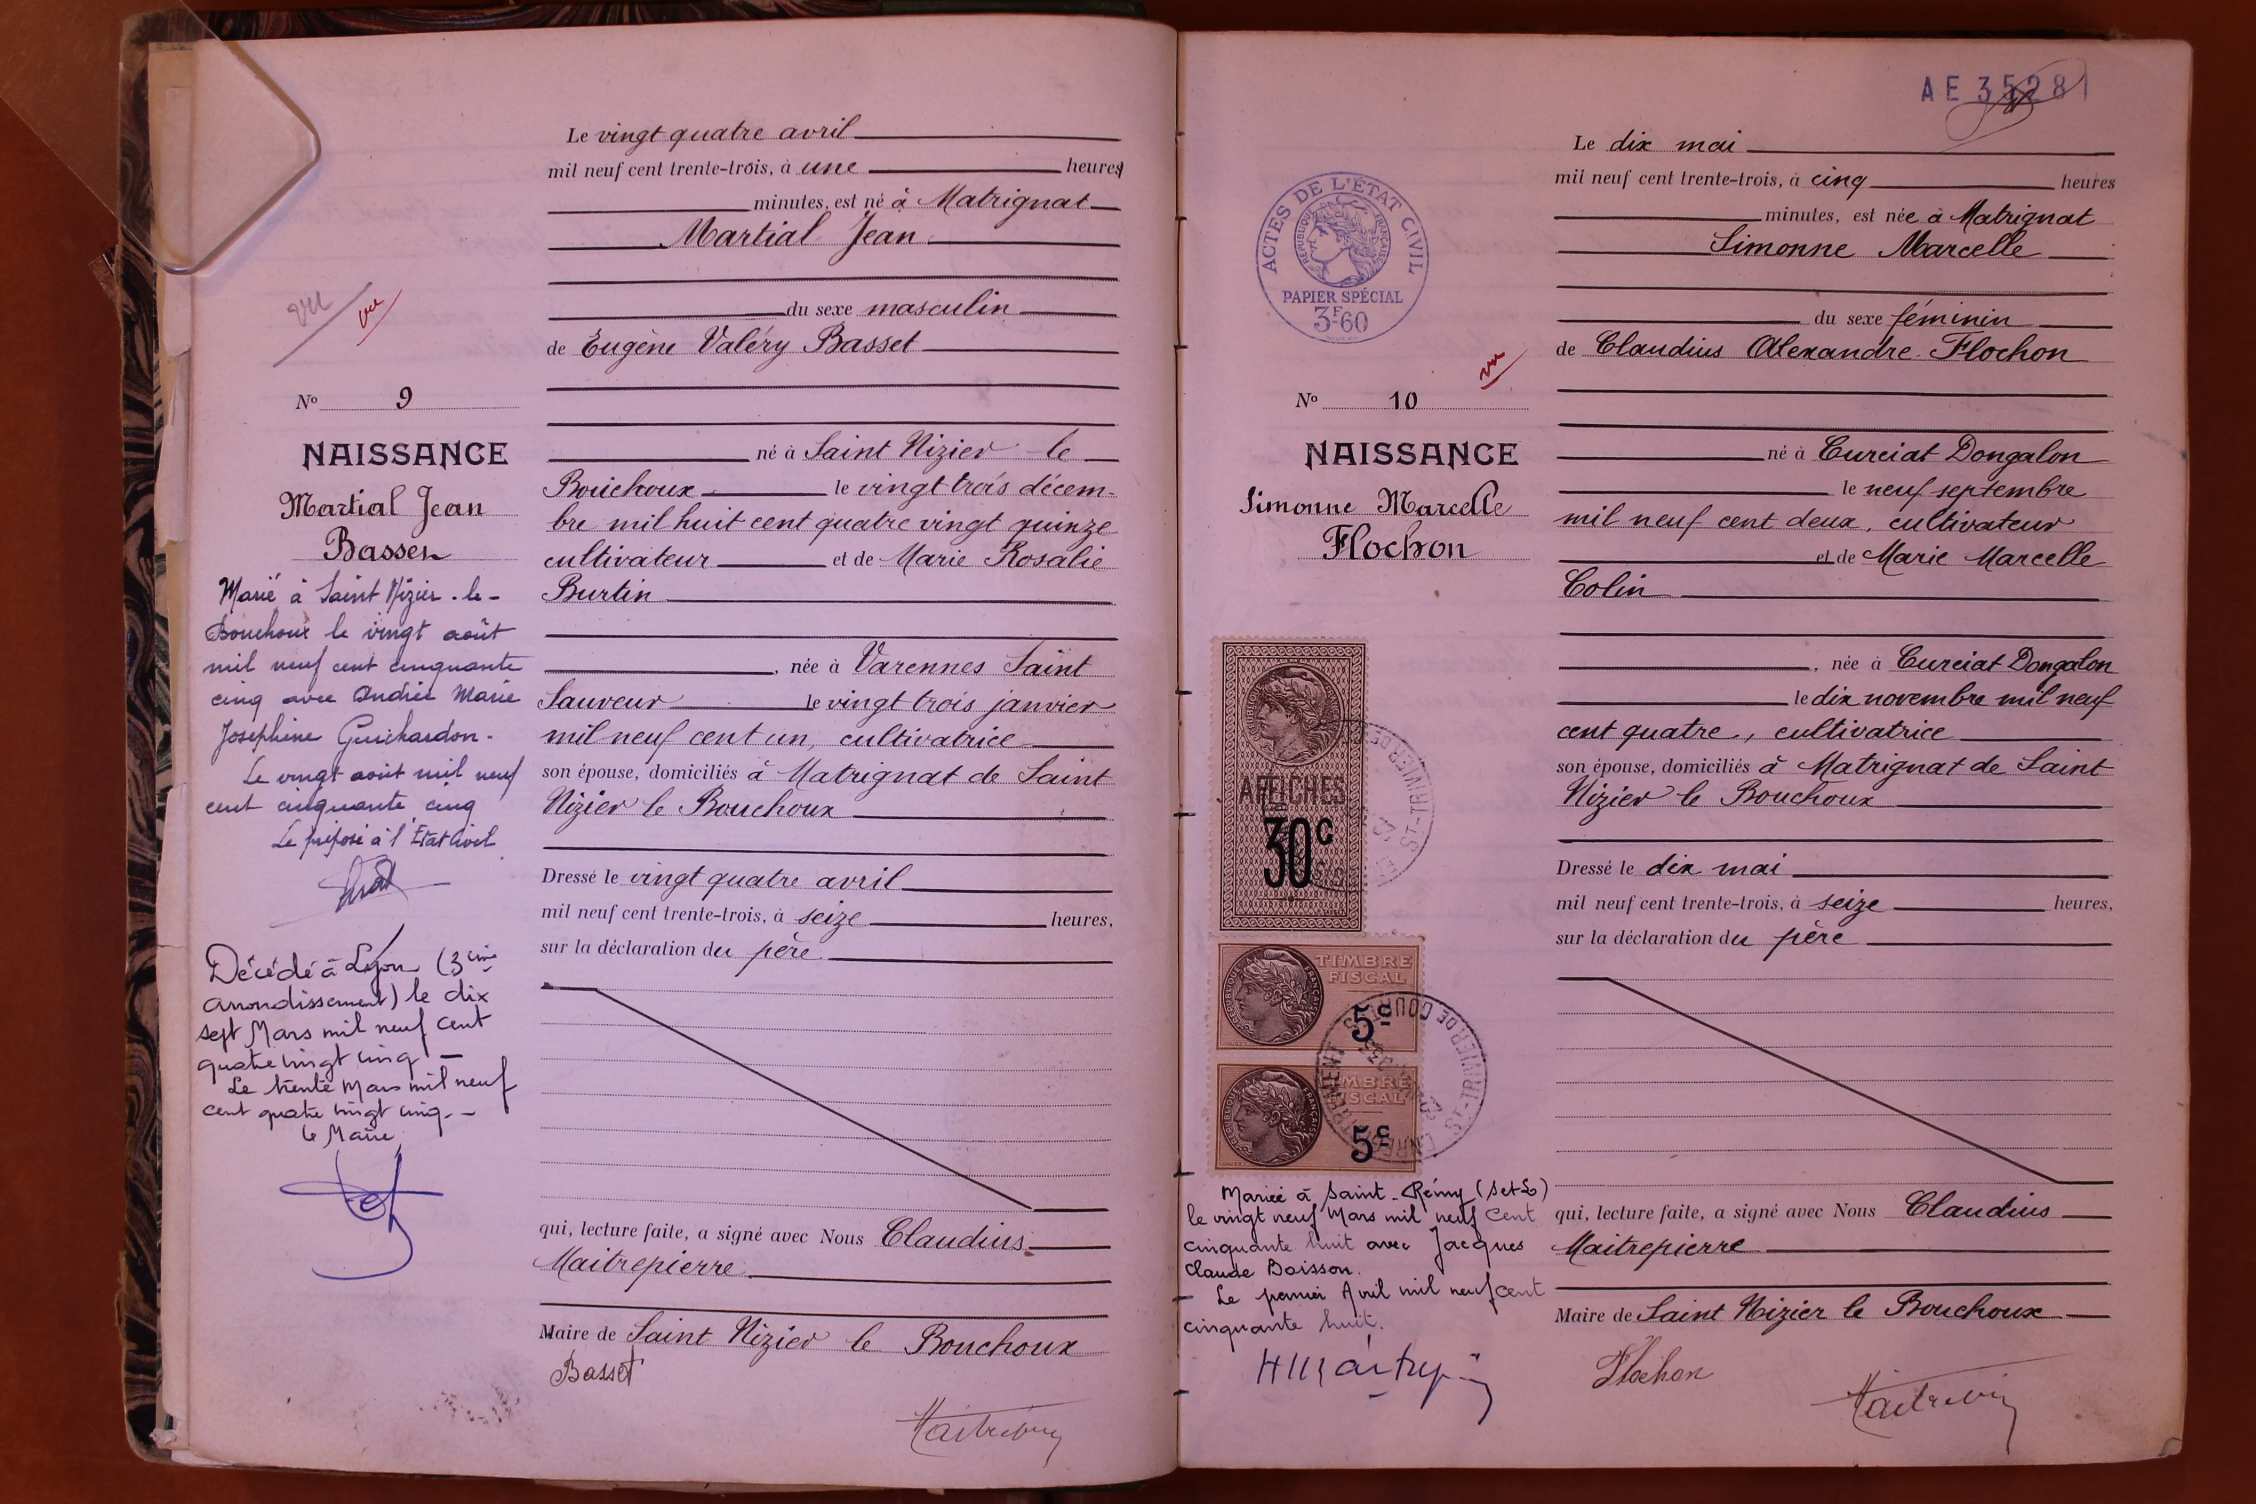 vu
vu
N° 9
NAISSANCE
Martial Jean
Basset
Marié à Saint Nizier-le-
Bouchoux le vingt août
mil neuf cent cinquante
cinq avec Andrée Marie
Josephine Guichardon.
Le vingt août mil neuf
cent cinquante cinq
Le préposé à l'Etat Civil
Décédé à Lyon (3ème
arrondissement) le dix
sept Mars mil neuf cent
quatre vingt cinq —
Le trente Mars mil neuf
cent quatre vingt cinq. —
le Maire
Le vingt quatre avril
mil neuf cent trente-trois, à une heures
minutes, est né à Matrignat
Martial Jean
du sexe masculin
de Eugène Valéry Basset
né à Saint Nizier le
Bouchoux le vingt trois décem-
bre mil huit cent quatre vingt quinze
cultivateur et de Marie Rosalie
Burtin
, née à Varennes Saint
Sauveur le vingt trois janvier
mil neuf cent un, cultivatrice
son épouse, domiciliés à Matrignat de Saint
Nizier le Bouchoux
Dressé le vingt quatre avril
mil neuf cent trente-trois, à seize heures,
sur la déclaration du père
qui, lecture faite, a signé avec Nous Claudius
Maitrepierre
Maire de Saint Nizier le Bouchoux
Basset
AE 35281
ACTES DE L'ÉTAT CIVIL
RÉPUBLIQUE FRANÇAISE
PAPIER SPÉCIAL
3F60
vu
N° 10
NAISSANCE
Simonne Marcelle
Flochon
AFFICHES
30c
TIMBRE
FISCAL
5c
TIMBRE
FISCAL
5c
ST-TRIVIER DE COURTES
Mariée à Saint-Rémy (S et L)
le vingt neuf Mars mil neuf cent
cinquante huit avec Jacques
Claude Boisson.
Le premier Avril mil neuf cent
cinquante huit.
Le dix mai
mil neuf cent trente-trois, à cinq heures
minutes, est née à Matrignat
Simonne Marcelle
du sexe féminin
de Claudius Alexandre Flochon
né à Curciat Dongalon
le neuf septembre
mil neuf cent deux, cultivateur
et de Marie Marcelle
Colin
, née à Curciat Dongalon
le dix novembre mil neuf
cent quatre, cultivatrice
son épouse, domiciliés à Matrignat de Saint
Nizier le Bouchoux
Dressé le dix mai
mil neuf cent trente-trois, à seize heures,
sur la déclaration du père
qui, lecture faite, a signé avec Nous Claudius
Maitrepierre
Maire de Saint Nizier le Bouchoux
Flochon